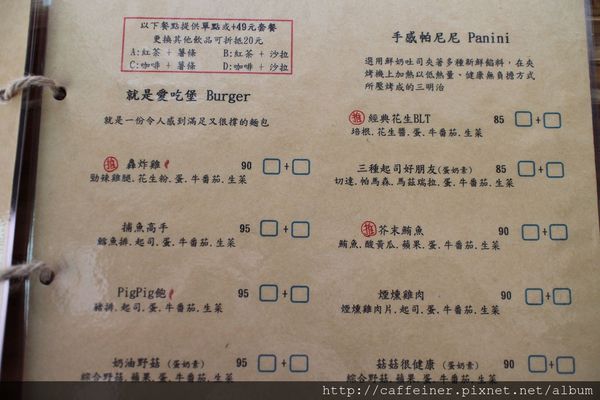 以下餐點提供單點或+49元套餐
更換其他飲品可折抵20元
A:紅茶 + 薯條 B:紅茶 + 沙拉
C:咖啡 + 薯條 D:咖啡 + 沙拉
就是愛吃堡 Burger
就是一份令人感到滿足又很撐的麵包
推 轟炸雞 90 +
勁辣雞腿.花生粉.蛋.牛番茄.生菜
捕魚高手 95 +
鱈魚排.起司.蛋.牛番茄.生菜
PigPig飽 95 +
豬排.起司.蛋.牛番茄.生菜
奶油野菇 (蛋奶素) 95 +
綜合野菇.蘋果.蛋.牛番茄.生菜
手感帕尼尼 Panini
選用鮮奶吐司夾著多種新鮮餡料，在夾
烤機上加熱以低熱量、健康無負擔方式
所壓烤成的三明治
推 經典花生BLT 85 +
培根.花生醬.蛋.牛番茄.生菜
三種起司好朋友(蛋奶素) 85 +
切達.帕馬森.馬茲瑞拉.蛋.牛番茄.生菜
推 芥末鮪魚 90 +
鮪魚.酸黃瓜.蘋果.蛋.牛番茄.生菜
煙燻雞肉 90 +
煙燻雞肉片.起司.蛋.牛番茄.生菜
菇菇很健康 (蛋奶素) 90 +
綜合野菇.蘋果.蛋.牛番茄.生菜
http://caffeiner.pixnet.net/album